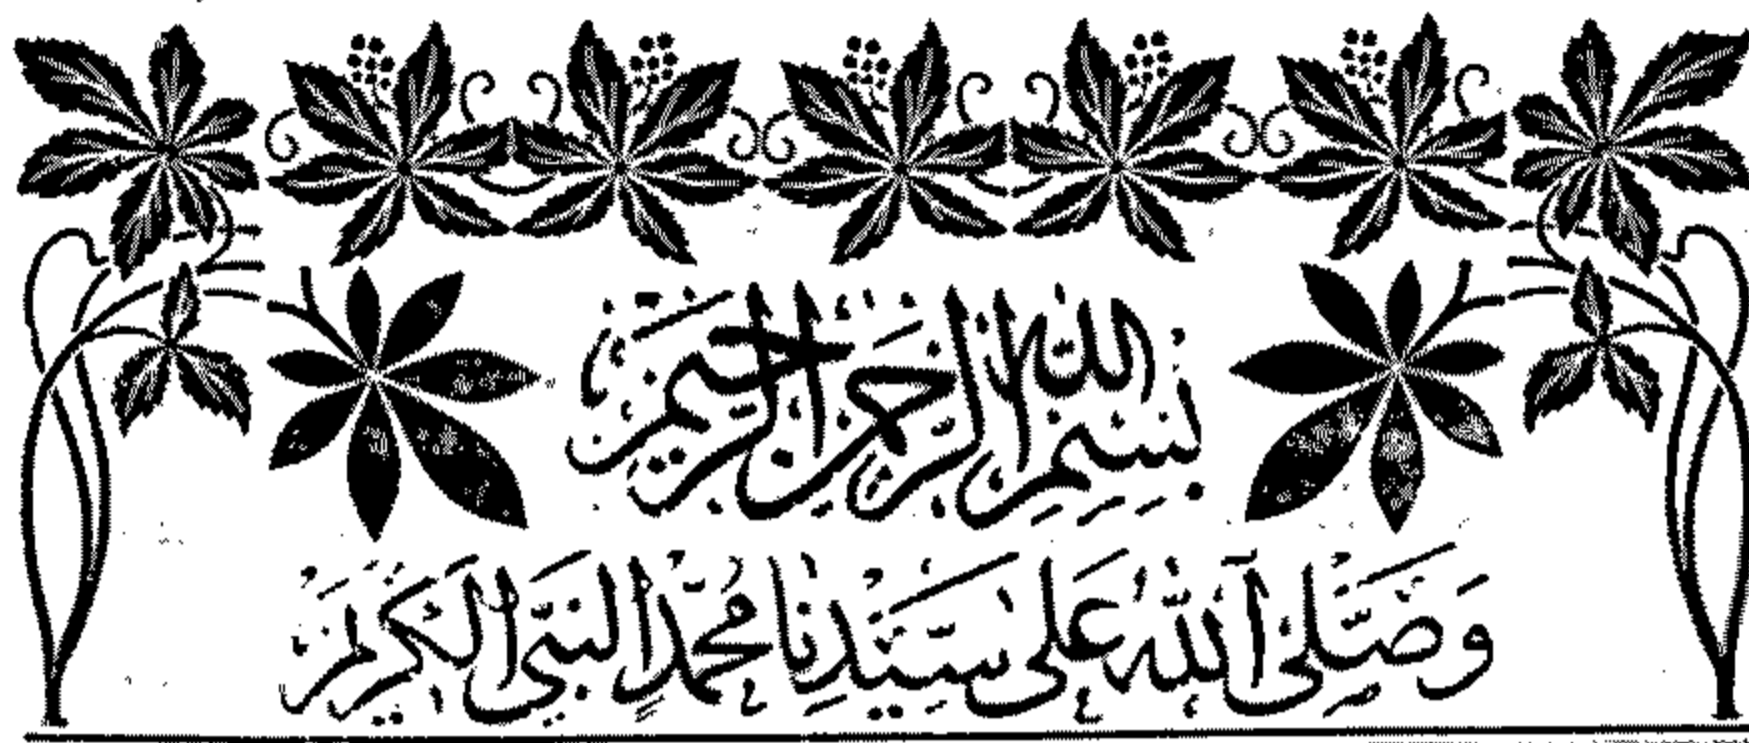 بِسْمِ اللهِ الرَّحْمٰنِ الرَّحِيْمِ
وَصَلَّى اللهُ عَلَى سَيِّدِنَا مُحَمَّدٍ النَّبِيِّ الْكَرِيْمِ